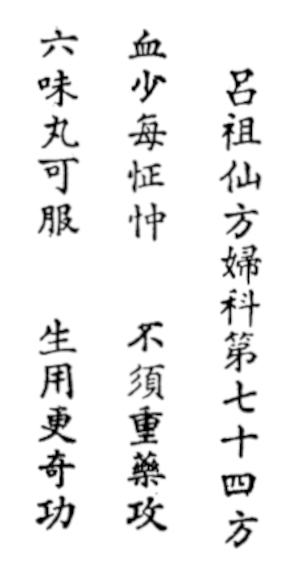 呂祖仙方婦科第七十四方
血少每怔忡　不須重藥攻
六味丸可服　生用更奇功